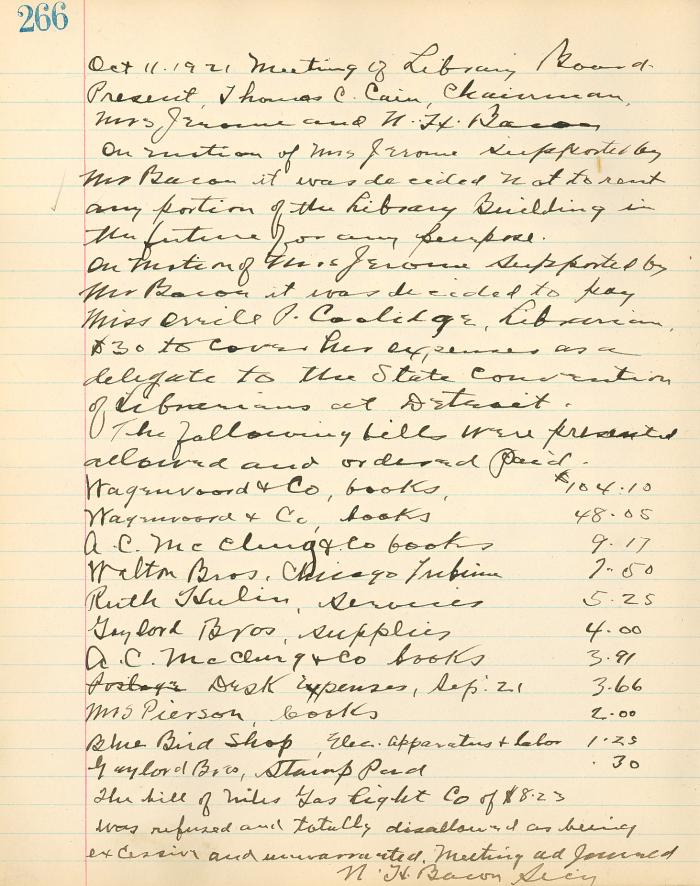 266
Oct 11. 1921 Meeting of Library Board.
Present, Thomas C. Cain, Chairman,
Mrs Jerome and N. H. Bacon
On motion of Mrs Jerome supported by
Mr Bacon it was decided not to rent
any portion of the Library Building in
the future for any purpose.
On motion of Mrs Jerome supported by
Mr Bacon it was decided to pay
Miss Orrill P. Coolidge, Librarian,
$30 to cover her expenses as a
delegate to the State Convention
of Librarians at Detroit.
The following bills were presented
allowed and ordered paid.
Wagenvoord & Co, books, $104.10
Wagenvoord & Co, books 48.05
A. C. McClurg & Co books 9.17
Walton Bros. Chicago Tribune 7.50
Ruth Hulin, services 5.25
Gaylord Bros, supplies 4.00
A. C. McClurg & Co books 3.91
Postage Desk Expenses, Sep. 21 3.66
Mrs Pierson, books 2.00
Blue Bird Shop, Elec. apparatus & labor 1.25
Gaylord Bros, Stamp Pad .30
The bill of Niles Gas Light Co of $8.23
was refused and totally disallowed as being
excessive and unwarranted. Meeting adjourned
N. H. Bacon Secy